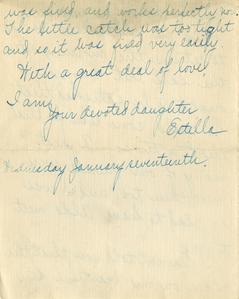 was fixed, and works perfectly now.
The little catch was too tight
and so it was fixed very easily.
With a great deal of love,
I am,
your devoted daughter
Estella
Wednesday January seventeenth.